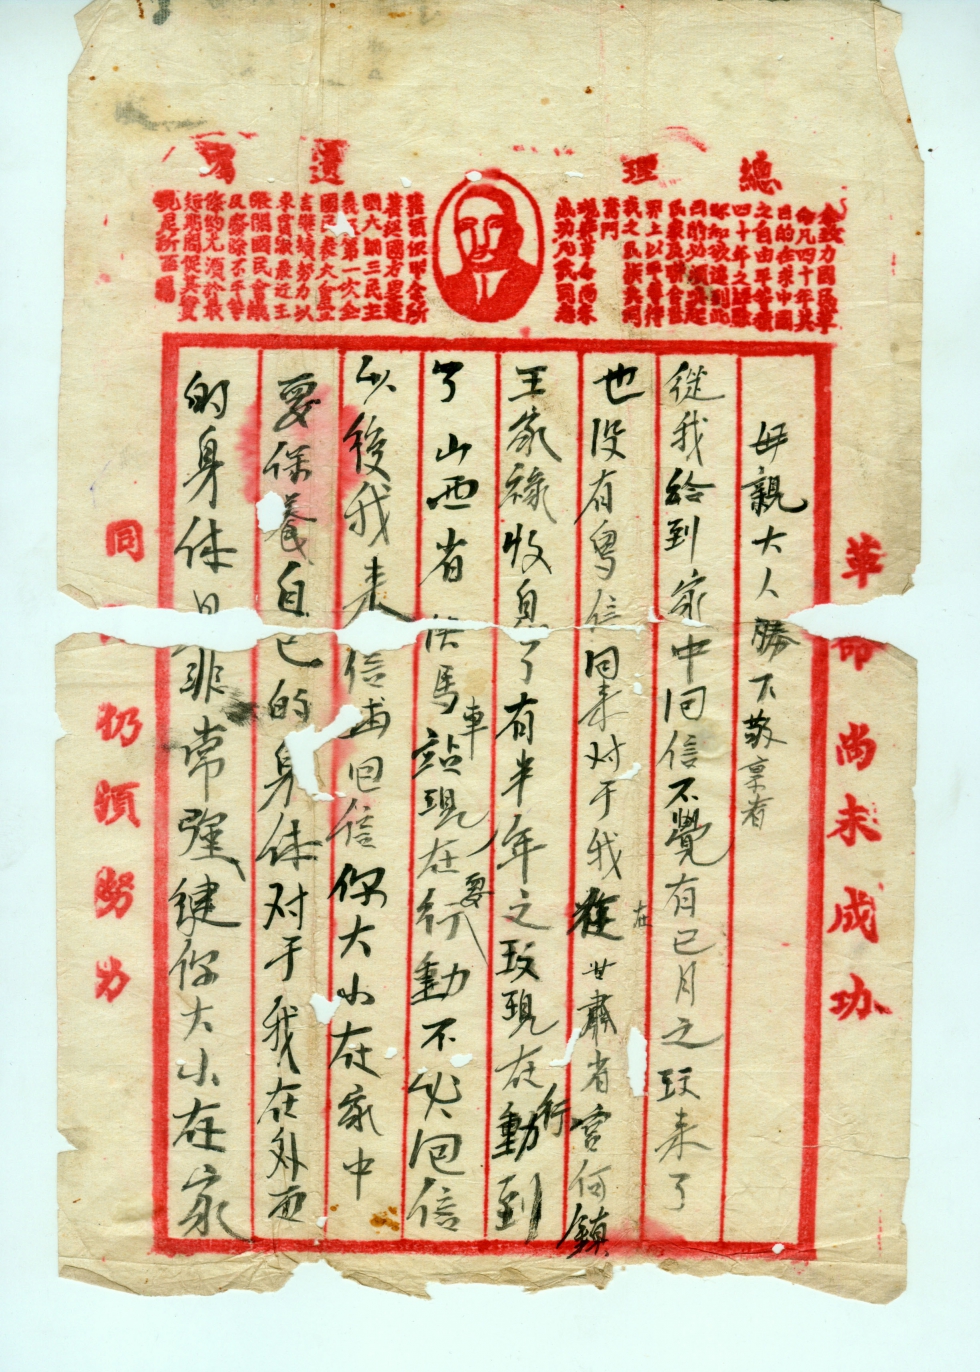 總理遺囑
余致力國民革
命凡四十年其
目的在求中國
之自由平等積
四十年之經驗
深知欲達到此
目的必須喚起
民衆及聯合世
界上以平等待
我之民族共同
奮鬥
現在革命尚未
成功凡我同志
務須依照余所
著建國方畧建
國大綱三民主
義及第一次全
國代表大會宣
言繼續努力以
求貫徹最近主
張開國民會議
及廢除不平等
條約尤須於最
短期間促其實
現是所至囑
革命尚未成功
母親大人膝下敬禀者
從我給到家中回信不覺有已月之玟来了
也没有見信回来对于我在甘肅省宫何鎮
王家緣收息了有半年之玟現在行動到
了山西省侯馬車站現在要行動不必回信
以後我来信在回信你大小在家中
要保養自己的身体对于我在外面
的身体是非常强健你大小在家
同 仍須努力